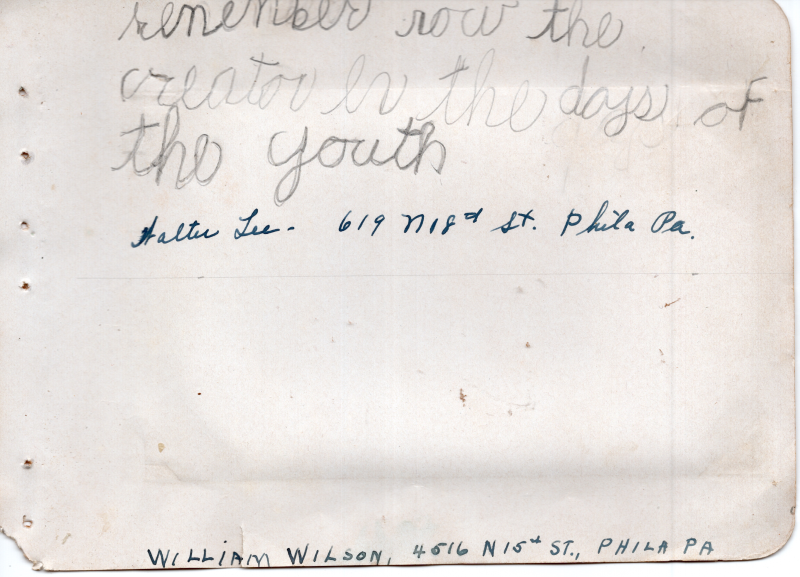 remember now the
creator in the days of
the youth
Walter Lee - 619 N18th St. Phila Pa.
WILLIAM WILSON, 4516 N 15th ST., PHILA PA